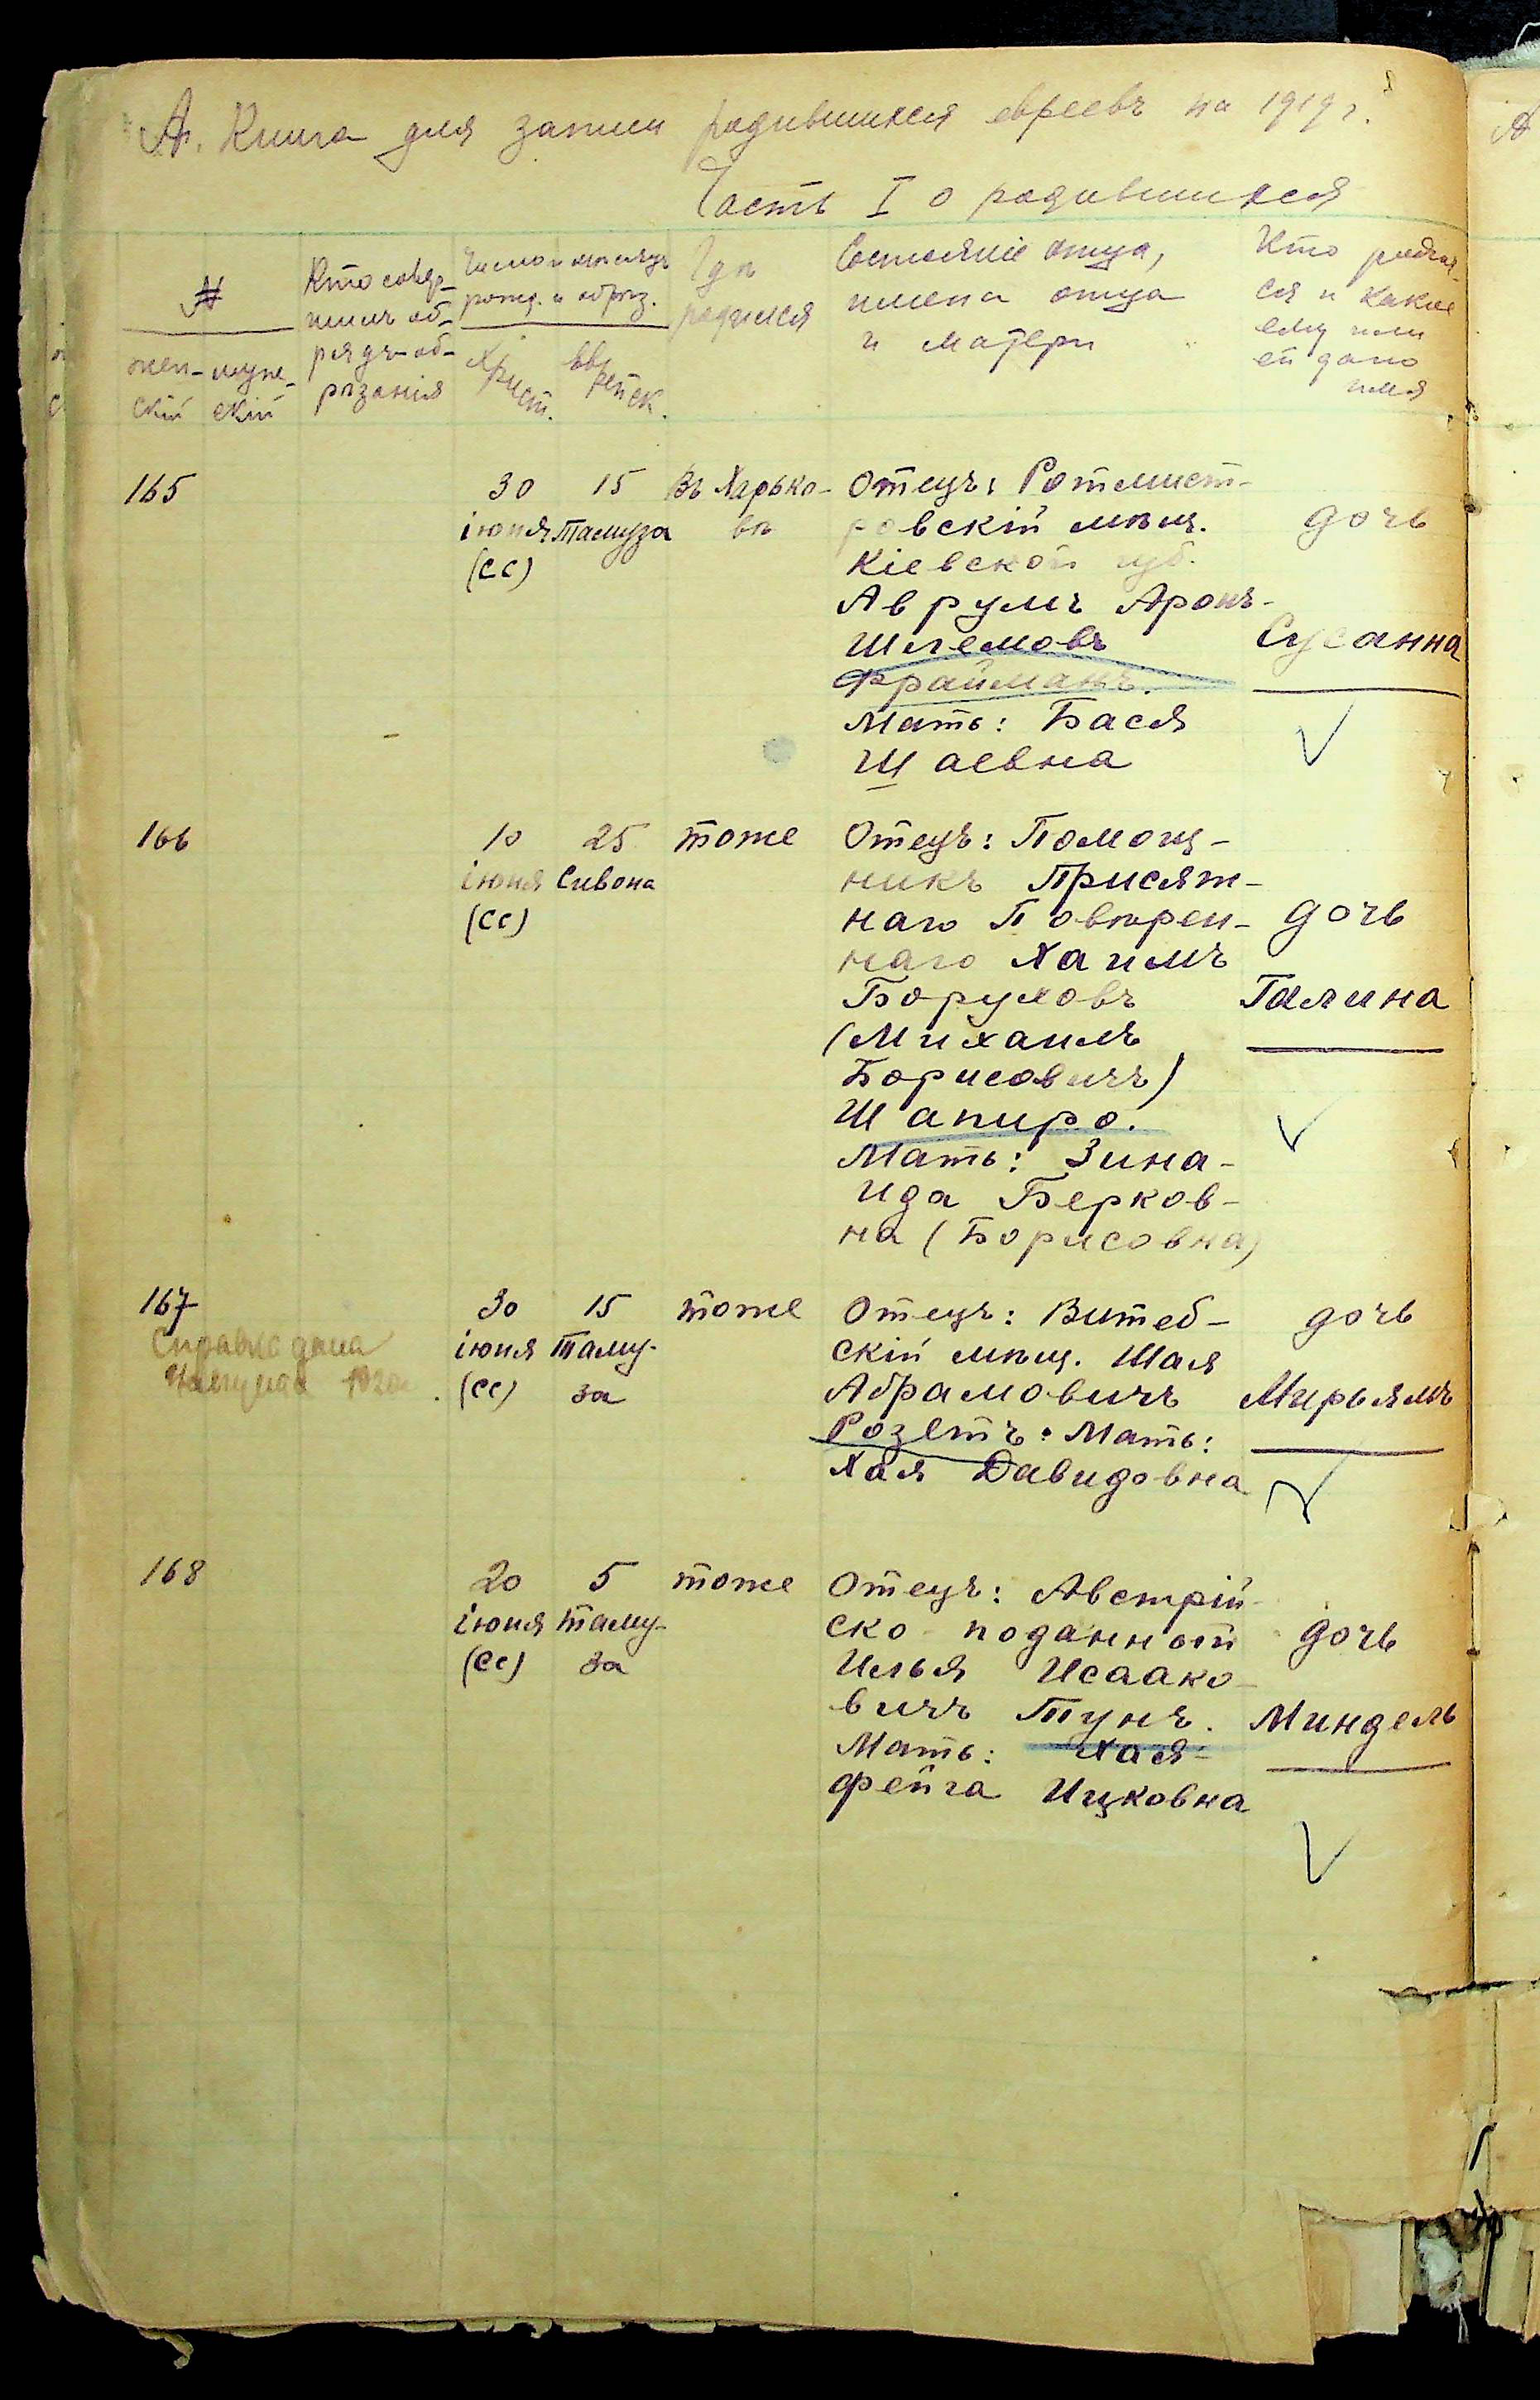 А. Книга для записи родившихся евреевъ на 1919 г.
Часть I о родившихся
№
жен-
скій
муже-
скій
Кто совер-
шилъ об-
рядъ об-
рѣзанія
Число и мѣсяцъ
рожд. и обрѣз.
Христ.
Еврейск.
Гдѣ
родился
Состояніе отца,
имена отца
и матери
Кто родил-
ся и какое
ему или
ей дано
имя
165
30
іюня
(СС)
15
Тамуза
Въ Харько-
вѣ
Отецъ: Ротмист-
ровскій мѣщ.
Кіевской губ.
Аврумъ Аронъ-
Шлемовъ
Фрайманъ.
Мать: Бася
Шаевна
дочь
Сусанна
166
10
іюня
(СС)
25
Сивона
тоже
Отецъ: Помощ-
никъ Присяж-
наго Повѣрен-
наго Хаимъ
Боруховъ
(Михаилъ
Борисовичъ)
Шапиро.
Мать: Зина-
ида Берков-
на (Борисовна)
дочь
Галина
167
Справка дана
30
іюня
(СС)
15
Таму-
за
тоже
Отецъ: Витеб-
скій мѣщ. Шая
Абрамовичъ
Розетъ. Мать:
Хая Давидовна
дочь
Мирьямъ
168
20
іюня
(СС)
5
Таму-
за
тоже
Отецъ: Австрій-
ско поданный
Илья Исаако-
вичъ Тунъ.
Мать: Хая-
Фейга Ицковна
дочь
Миндель